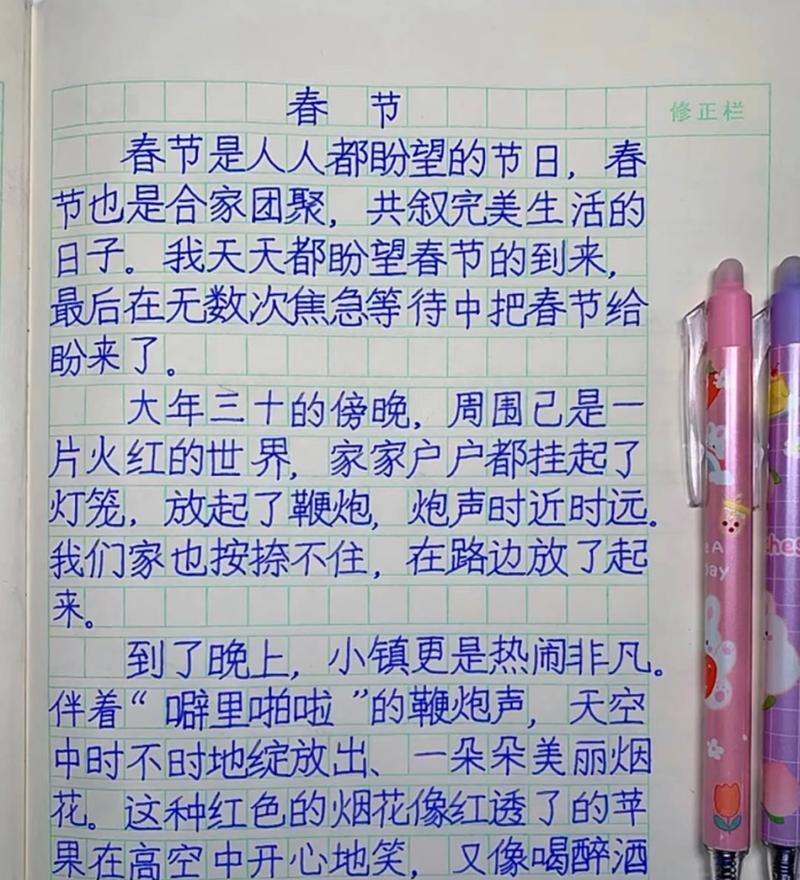 春 节
修正栏
春节是人人都盼望的节日，春
节也是合家团聚，共叙完美生活的
日子。我天天都盼望春节的到来，
最后在无数次焦急等待中把春节给
盼来了。
大年三十的傍晚，周围已是一
片火红的世界，家家户户都挂起了
灯笼，放起了鞭炮，炮声时近时远。
我们家也按捺不住，在路边放了起
来。
到了晚上，小镇更是热闹非凡。
伴着“噼里啪啦”的鞭炮声，天空
中时不时地绽放出、一朵朵美丽烟
花。这种红色的烟花像红透了的苹
果在高空中开心地笑，又像喝醉酒